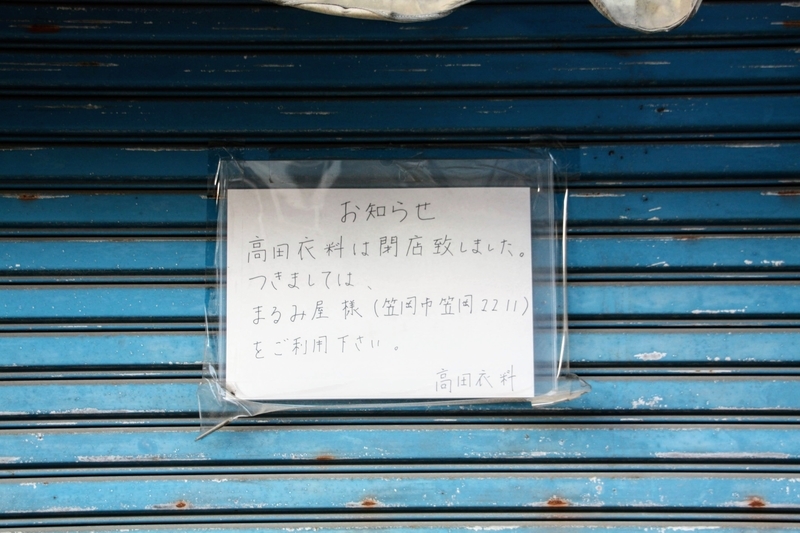 お知らせ
高田衣料は閉店致しました。
つきましては、
まるみ屋 様 (笠岡市笠岡2211)
をご利用下さい。
高田衣料